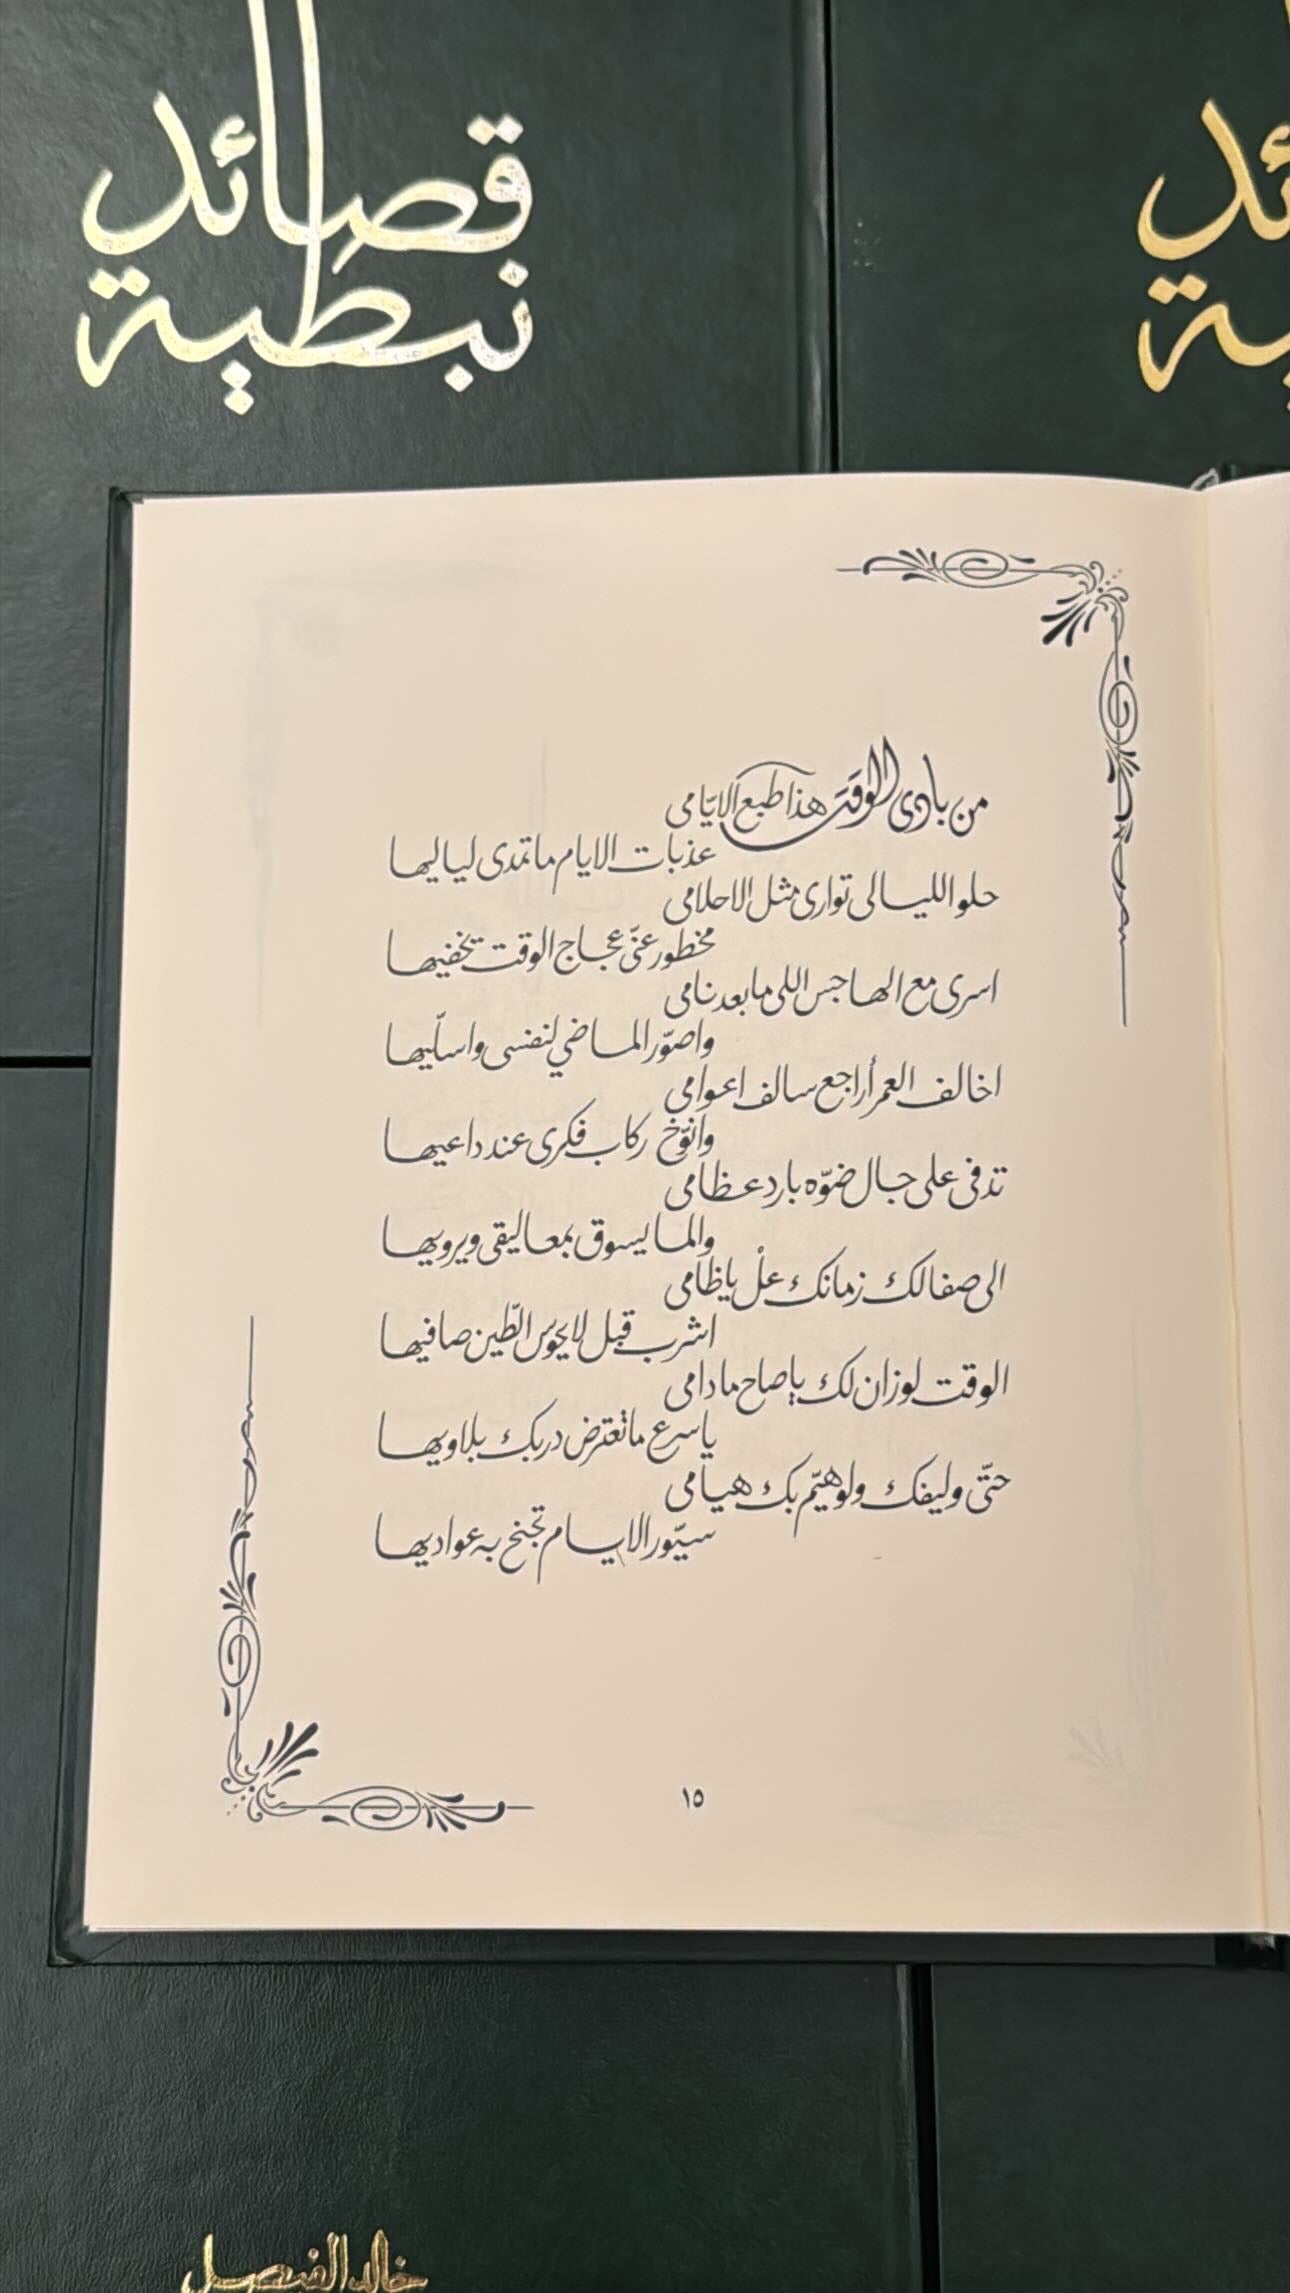 قصائد
نبطية
ئد
ية
من بادى الوقت هذا طبع الايّامى
عذبات الايام ماتمدى لياليها
حلو الليالى توارى مثل الاحلامى
مخطور عنّى عجاج الوقت تخفيها
اسرى مع الهاجس اللى مابعد نامى
واصوّر الماضي لنفسى واسلّيها
اخالف العمر أراجع سالف اعوامى
وانوّخ ركاب فكرى عند داعيها
تدفى على جال ضوّه بارد عظامى
والما يسوق بمعاليقى ويرويها
الى صفالك زمانك علْ ياظامى
اشرب قبل لايحوس الطّين صافيها
الوقت لوزان لك ياصاح مادامى
ياسرع ماتعترض دربك بلاويها
حتّى وليفك ولوهيّم بك هيامى
سيّور الايام تجنح به عواديها
١٥
خالد الفيصل